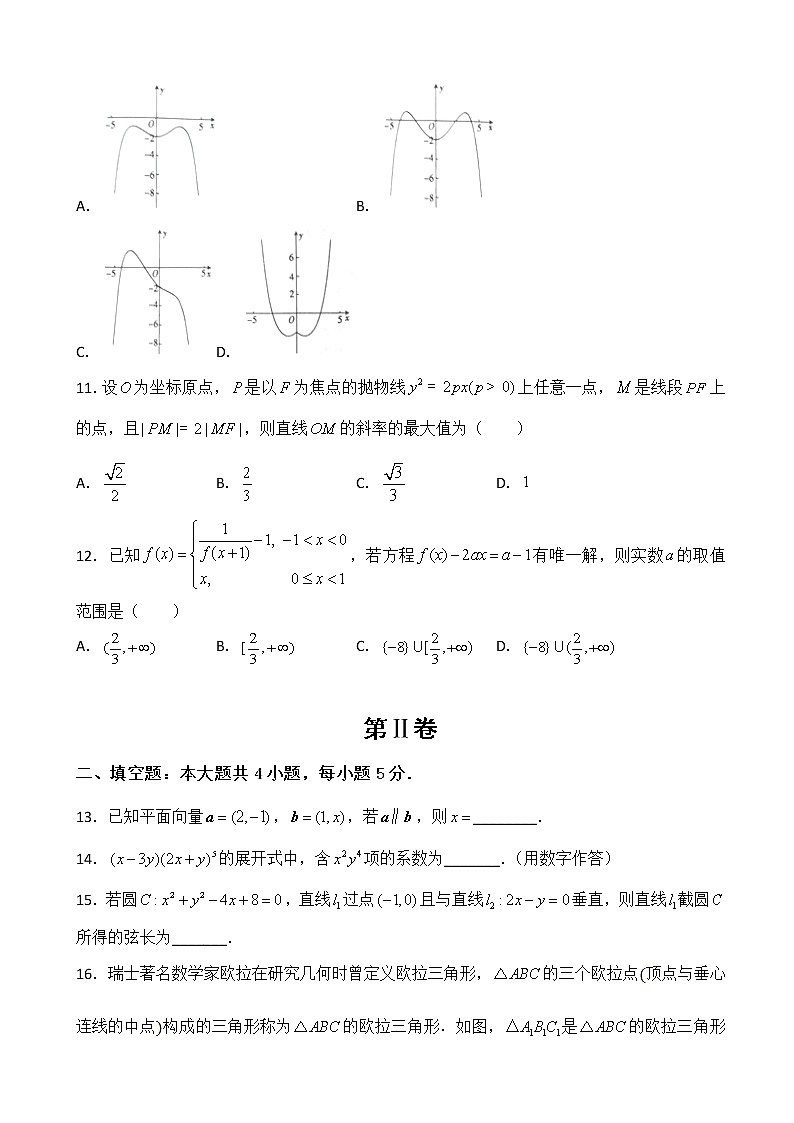 y
-5 O 5 x
-2
-4
-6
-8
A.
y
-5 O 5 x
-2
-4
-6
-8
B.
y
-5 O 5 x
-2
-4
-6
-8
C.
y
6
4
2
-5 O 5 x
D.
11. 设 O 为坐标原点, P 是以 F 为焦点的抛物线 y² = 2px(p > 0) 上任意一点, M 是线段 PF 上
的点,且 | PM |= 2 | MF |,则直线 OM 的斜率的最大值为( )
A. √2/2 B. 2/3 C. √3/3 D. 1
12. 已知 f(x) = { 1/f(x+1) − 1, −1 < x < 0
x, 0 ≤ x < 1 ,若方程 f(x) − 2ax = a − 1 有唯一解,则实数 a 的取值
范围是( )
A. (2/3, +∞) B. [2/3, +∞) C. {−8}∪[2/3, +∞) D. {−8}∪(2/3, +∞)
第Ⅱ卷
二、填空题:本大题共 4 小题,每小题 5 分.
13. 已知平面向量 a = (2, −1), b = (1, x),若 a∥b,则 x = ________.
14. (x − 3y)(2x + y)⁵ 的展开式中,含 x²y⁴ 项的系数为_______.(用数字作答)
15. 若圆 C : x² + y² − 4x + 8 = 0,直线 l₁ 过点 (−1,0) 且与直线 l₂ : 2x − y = 0 垂直,则直线 l₁ 截圆 C
所得的弦长为_______.
16. 瑞士著名数学家欧拉在研究几何时曾定义欧拉三角形, △ABC 的三个欧拉点(顶点与垂心
连线的中点)构成的三角形称为 △ABC 的欧拉三角形. 如图, △A₁B₁C₁ 是 △ABC 的欧拉三角形